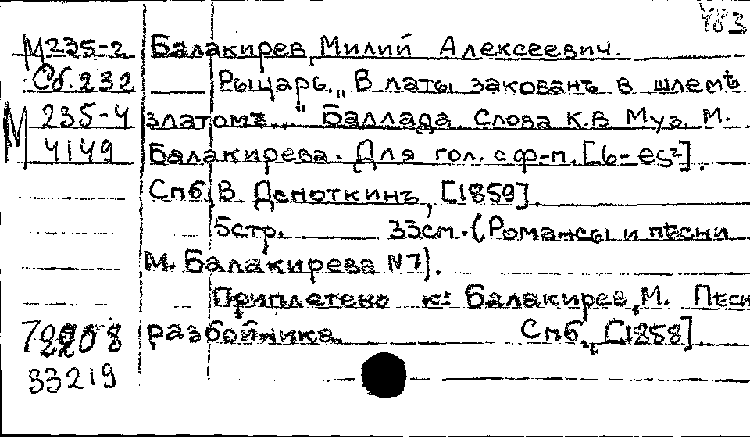 483
М235-2 Балакирев, Милий Алексеевич.
Сб.232 Рыцарь. „В латы закованъ в шлемѣ
М 235-4 златомъ..." Баллада. Слова К.В. Муз. М.
4149 Балакирева. Для гол. с ф-п. [b-es²].
Спб, В. Деноткинъ, [1859].
5стр. 33см. (Романсы и пѣсни
М. Балакирева №7).
Приплетено к: Балакирев, М. Песн
разбойника. Спб., [1858].
33219